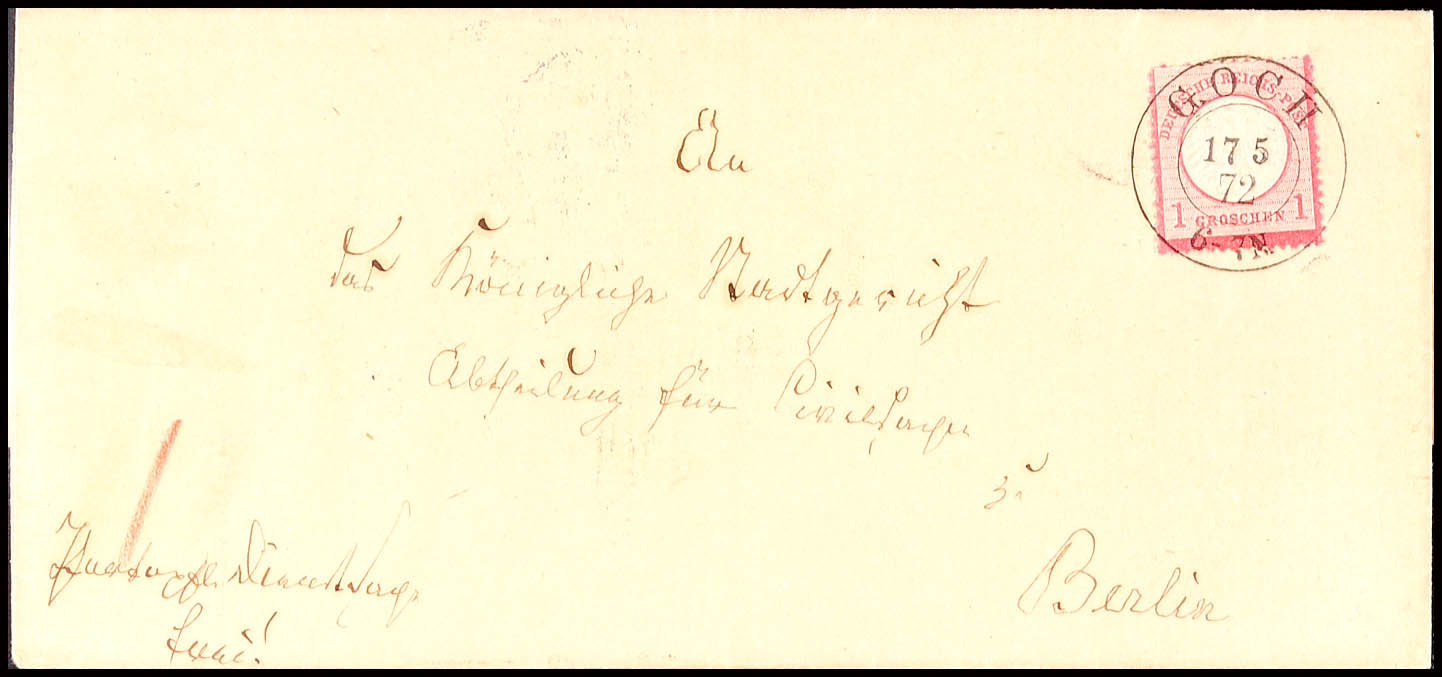 GOCH
17 5
72
6-7N
DEUTSCHE REICHS-POST
1 GROSCHEN 1
An
das Königliche Stadtgericht
Abtheilung für Civilsachen
zu
Berlin
Portopfl. Dienstsache
frei!